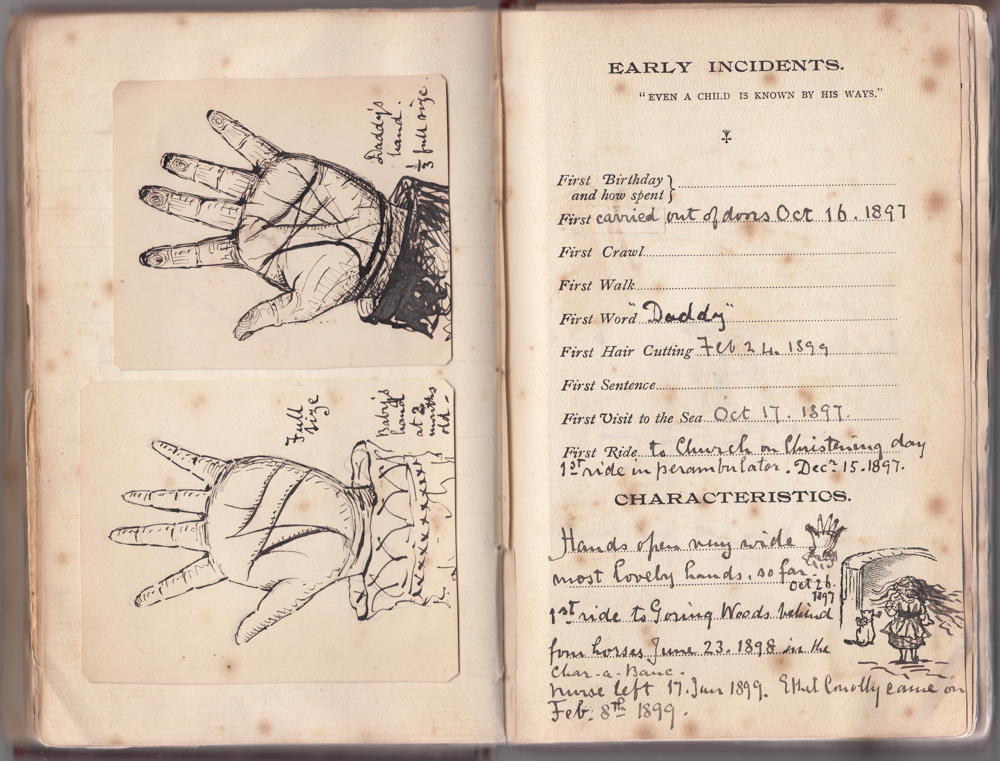 Daddy's
hand.
1/3 full size.
Full
size
Baby's
hand
at 2
months
old-
EARLY INCIDENTS.
"EVEN A CHILD IS KNOWN BY HIS WAYS."
First Birthday
and how spent
First carried out of doors Oct 16. 1897
First Crawl
First Walk
First Word "Daddy"
First Hair Cutting Feb 24. 1899
First Sentence
First Visit to the Sea Oct 17. 1897.
First Ride to Church on Christening day
1st ride in perambulator. Decr 15. 1897.
CHARACTERISTICS.
Hands open very wide
most lovely hands. so far.
Oct 26.
1897
1st ride to Goring Woods behind
four horses June 23. 1898 in the
Char-a-Banc.
nurse left 17. Jan 1899. Ethel Conolly came on
Feb. 8th 1899.